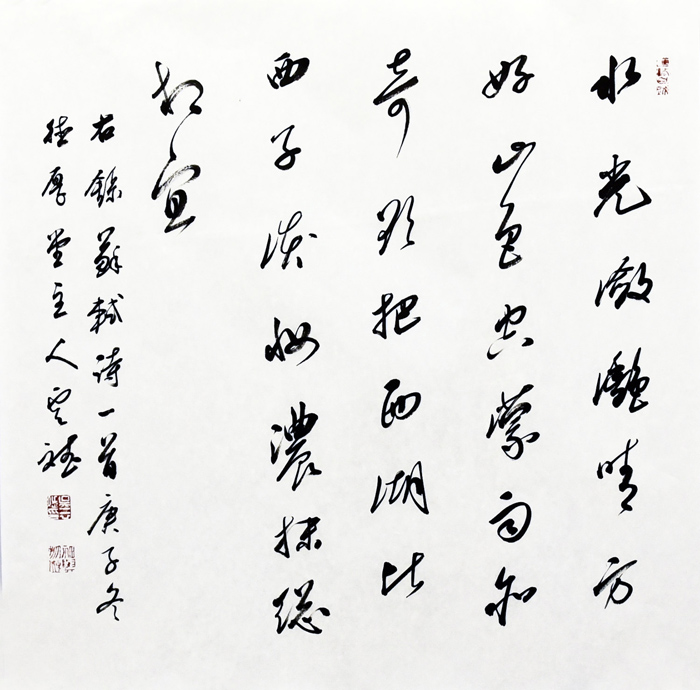 水光潋灧晴方
好山色空蒙雨亦
奇欲把西湖比
西子淡妆濃抹總
相宜
右錄蘇軾诗一首庚子冬
厚堂主人